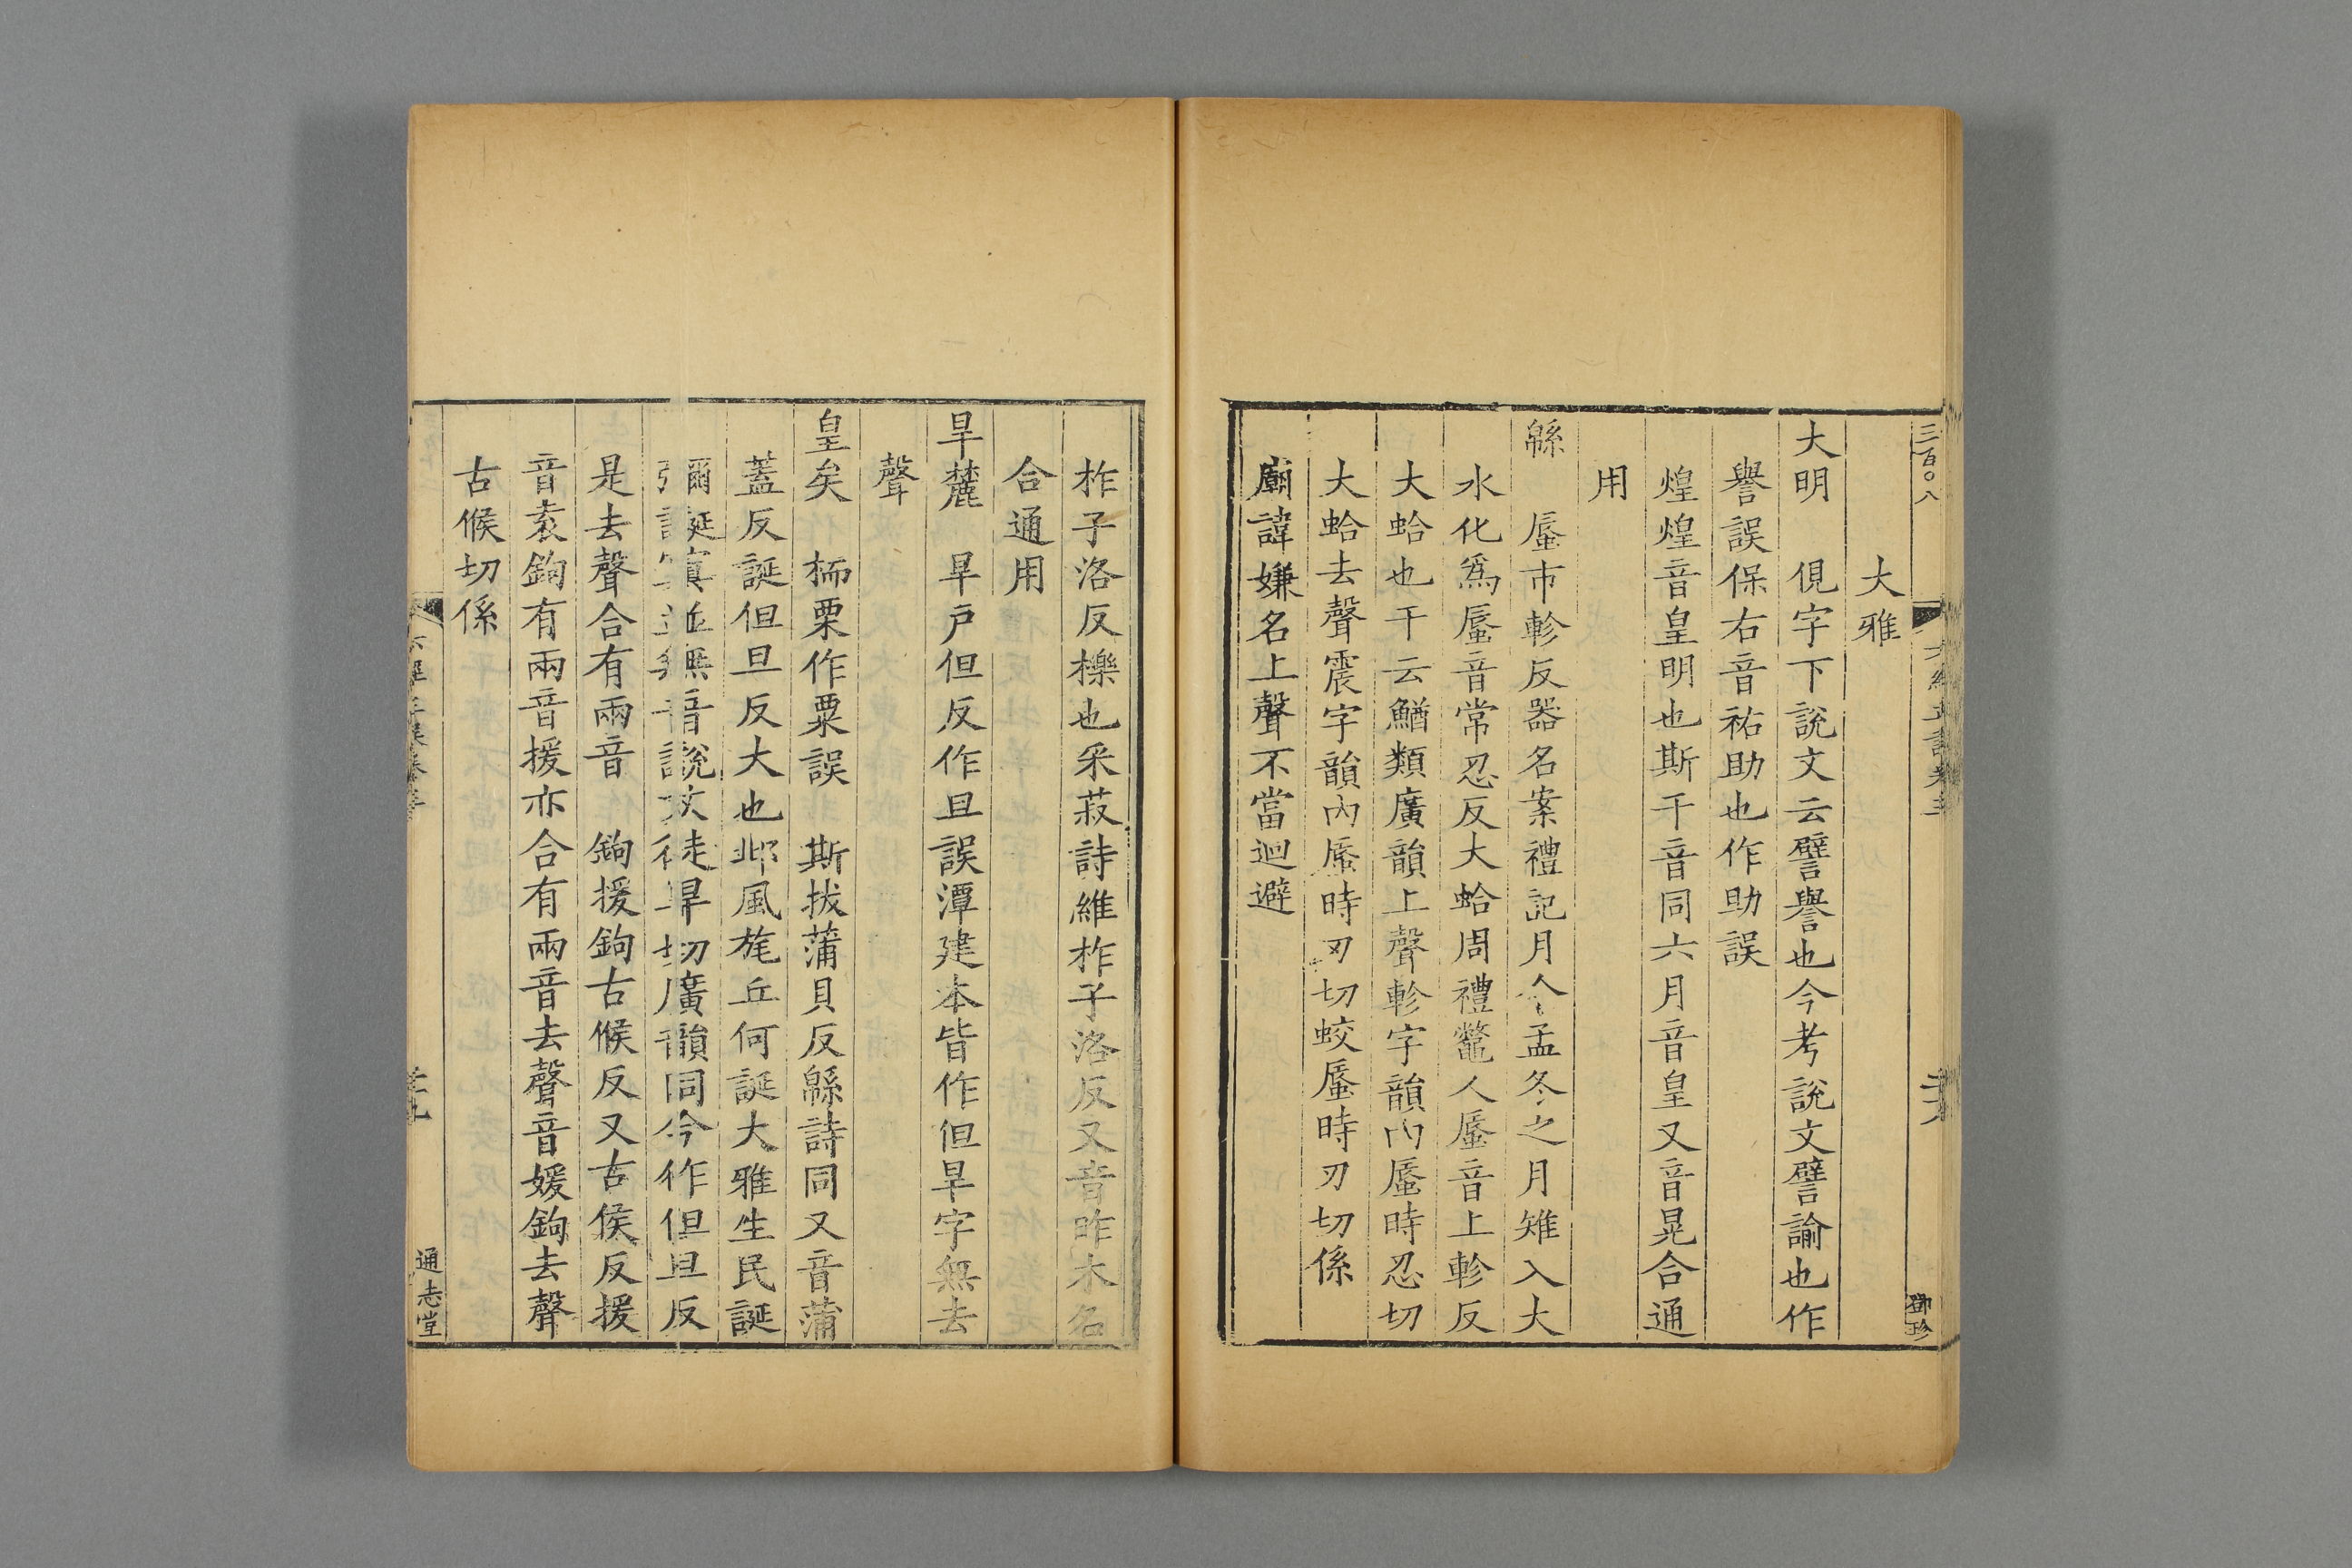 三百〇八
六經正誤卷三
大雅
大明　俔字下說文云譬譽也今考說文譬諭也作
譽誤保右音祐助也作助誤
煌煌音皇明也斯干音同六月音皇又音晃合通
用
緜　蜃市軫反器名案禮記月令孟冬之月雉入大
水化爲蜃音常忍反大蛤周禮鼈人蜃音上軫反
大蛤也干云鰌類廣韻上聲軫字韻內蜃時忍切
大蛤去聲震字韻內蜃時刃切蛟蜃時刃切係
廟諱嫌名上聲不當迴避
柞子洛反櫟也采菽詩維柞子洛反又音昨木名
合通用
旱麓　旱戶但反作且誤潭建本皆作但旱字無去
聲
皇矣　栭栗作粟誤　斯拔蒲貝反緜詩同又音蒲
蓋反誕但旦反大也邶風旄丘何誕大雅生民誕
彌誕寘並無音說文徒旱切廣韻同今作但旦反
是去聲合有兩音　鉤援鉤古候反又古侯反援
音袁鉤有兩音援亦合有兩音去聲音媛鉤去聲
古候切係
通志堂